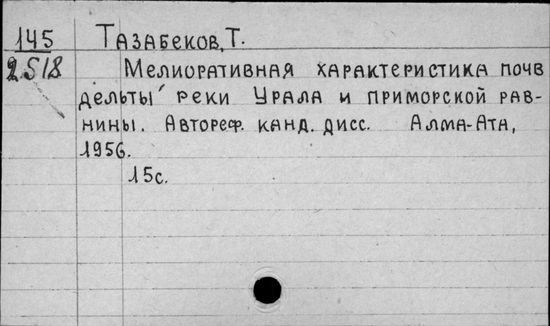 145
Тазабеков, Т.
2518
Мелиоративная характеристика почв
дельты реки Урала и приморской рав-
нины. Автореф. канд. дисс. Алма-Ата,
1956.
15с.